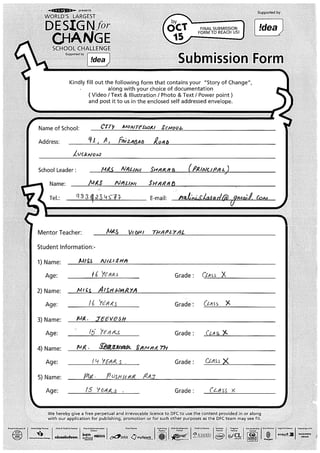 presents
WORLD'S LARGEST
DESIGN for
CHANGE
SCHOOL CHALLENGE
Supported by
!dea
by
OCT
15
FINAL SUBMISSION
FORM TO REACH US!
Supported by
!dea
Submission Form
Kindly fill out the following form that contains your "Story of Change",
along with your choice of documentation
( Video / Text & Illustration / Photo & Text / Power point )
and post it to us in the enclosed self addressed envelope.
1
2
3
Name of School: CITY MONTESSORI SCHOOL
Address: 91, A, FAIZABAD ROAD
LUCKNOW
School Leader : MRS NALINI SHARAD (PRINCIPAL)
Name: MRS NALINI SHARAD
Tel.: E-mail:
Mentor Teacher: MRS VIDHI THAPLYAL
Student Information:-
1) Name: MISS NILISHA
Age: 16 YEARS Grade : CLASS X
2) Name: MISS AISHWARYA
Age: 16 YEARS Grade : CLASS X
3) Name: MR. JEEVESH
Age: 15 YEARS Grade : CLASS X
4) Name: MR. SAMARTH
Age: 14 YEARS Grade : CLASS X
5) Name: MR. PUSHKAR RAJ
Age: 15 YEARS . Grade : CLASS X
We hereby give a free perpetual and irrevocable licence to DFC to use the content provided in or along
with our application for publishing, promotion or for such other purposes as the DFC team may see fit.
nickelodeon